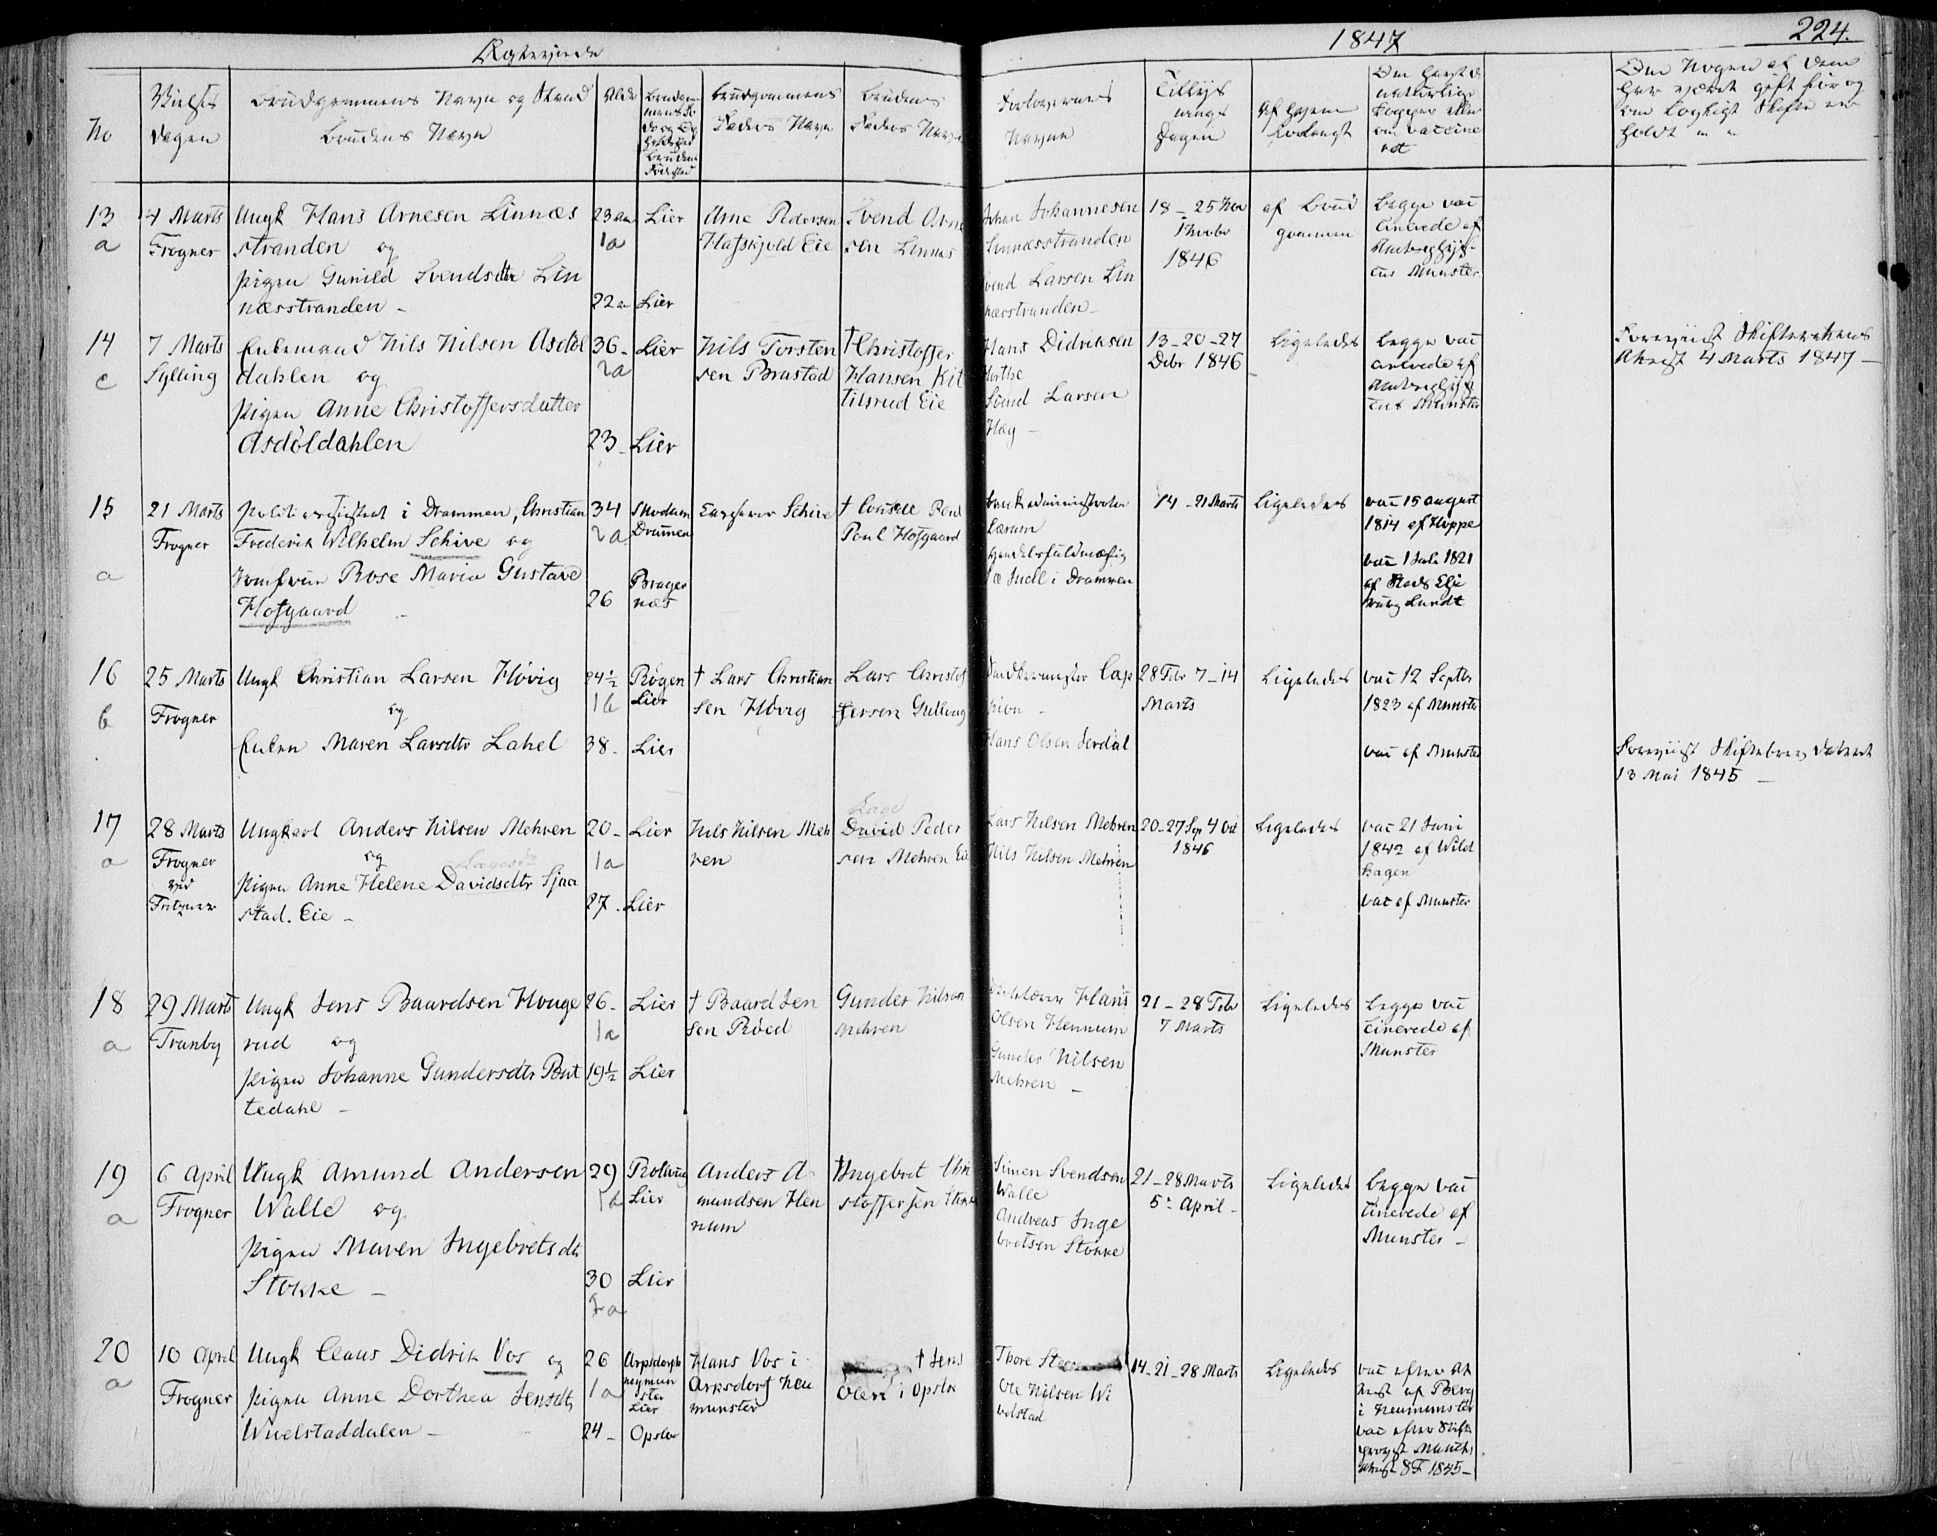 Ægteviede
1847
224.
No
Vielses
dagen
Brudgommens Navn og Stand
Brudens Navn
Alder
Brudgommens
Faders Navn
Brudens
Faders Navn
Forlovernes
Navne
Tillys
nings
dagen
Af hvem
forlangt
Om havt de
naturlige
Kopper eller
om vaccine
ret
Om Nogen af dem
har været gift før og
om lovligt Skifte er
holdt
13
a
4 Marts
Frogner
Ungk Hans Arnesen Linnæs
stranden og
pigen Gunild Svendsdtr Lin
næsstranden -
23 aar
1a
22 a
Lier
Lier
Arne Pedersen
Hafskjold Eie
Svend Arne
sen Linnæs
Johan Johannesen
Linnæsstranden
Svend Larsen Lin
næsstranden -
18 - 25 Nov
1846
af Brud
gommen
begge vac
cinerede af
Munster
14
c
7 Marts
Sylling
Enkemand Nils Nilsen Asdøl
dahlen og
pigen Anne Christoffersdatter
Asdöldahlen
36 -
2a
23 -
Lier
Lier
Nils Torsten
sen Brastad
† Christoffer
Hansen Kit
tilsrud Eie
Hans Didriksen
Svend Larsen
Hæg -
13 - 20 - 27
Debr 1846
Ligeledes
begge vac
cinerede af
Munster
Foreviist Skifterettens
Attest 4 Marts 1847 -
15
a
21 Marts
Frogner
politi i Drammen, Christian
Frederik Wilhelm Schive og
Jomfrue Rose Maria Gustava
Hofgaard -
34
2a
26
Modum
Drammen
Brager
næs
Schive
†
Paul Hofgaard
i Drammen
14 - 21 Marts
Ligeledes
vac 15 august
1814 af Hoppe
vac 1 Juli 1821
Lundt
16
b
25 Marts
Frogner
Ungk Christian Larsen Hövig
og
Enken Maren Larsdtr Lahel
24½
1b
38 -
Röyen
Lier
Lier
† Lars Christian
sen Hövig
Lars Christof
fersen Gullaug
Hans Olsen Jerdal
28 Febr 7 - 14
Marts
Ligeledes
vac 12 Septbr
1823 af Munster
vac af Munster
Foreviist Skiftebrev dateret
13 Mai 1845 -
17
a
28 Marts
Frogner
ved
Ungkarl Anders Nilsen Mehren
og
pigen Anne Helene Davidsdtr Sjaa
stad. Eie -
20 -
1a
27 -
Lier
Lier
Nils Nilsen Meh
ren
David Peder
sen Mehren Eie
Lars Nilsen Mehren
Nils Nilsen Mehren
20 - 27 Sep 4 Oct
1846
Ligeledes
vac 21 Juni
1842 af Wild
hagen
vac af Munster
18
a
29 Marts
Tranby
Ungk Jens Baardsen Houge
rud og
pigen Johanne Gundersdtr But
tedahl -
26 -
1a
19½
Lier
Lier
† Baard Jen
sen Röed
Gunder Nilsen
Mehren
Hans
Olsen Hennum
Gunder Nilsen
Mehren -
21 - 28 Febr
7 Marts
Ligeledes
begge vac
cinerede af
Munster
19
a
6 April
Frogner
Ungk Amund Andersen
Walle og
pigen Maren Ingebretsdtr
Stokke -
29
30
Lier
Lier
Anders A
mundsen Hen
num
† Ingebret Chri
stoffersen Stokke
Simen Svendsen
Walle
Andreas Inge
bretsen Stokke
21 - 28 Marts
5te April -
Ligeledes
begge vac
cinerede af
Munster -
20
a
10 April
Frogner
Ungk Claus Didrik Vos og
pigen Anne Dorthea Jensdtr
Wivelstaddalen -
26
1a
24 -
Lier
Opsloe
Hans Vos i
Arpsdorf Neu
munster
† Jens
Olen i Opsloe
Thore
Ole Nilsen Wi
velstad
14 - 21 - 28 Marts
Ligeledes
vac efter At
test af Berg
i Neumunster
vac efter
attest 8 F 1845 -